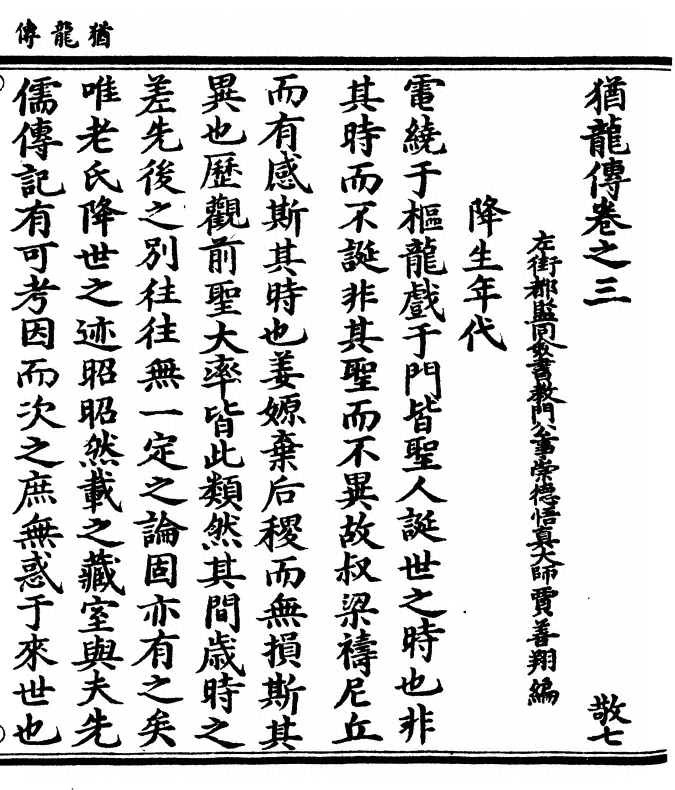 猶龍傳
猶龍傳卷之三
敬七
左街都監同僉書教門公事崇德悟真大師賈善翔編
降生年代
電繞于樞龍戲于門皆聖人誕世之時也非
其時而不誕非其聖而不異故叔梁禱尼丘
而有感斯其時也姜嫄棄后稷而無損斯其
異也歷觀前聖大率皆此類然其間歲時之
差先後之別往往無一定之論固亦有之矣
唯老氏降世之迹昭昭然載之藏室與夫先
儒傳記有可考因而次之庶無惑于來世也